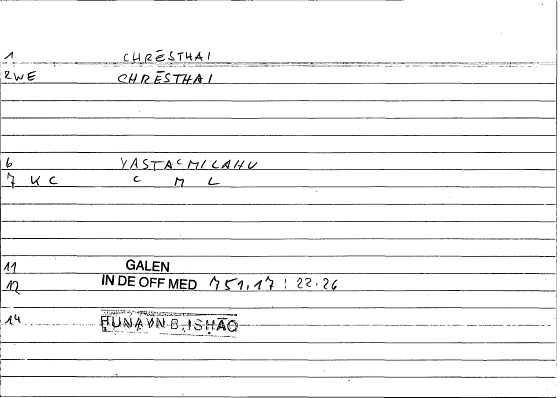 1 CHRĒSTHAI
2WE CHRĒSTHAI
6 YASTAᶜMILAHU
7 K C C M L
11 GALEN
12 IN DE OFF MED 751,17 : 22.26
14 ḤUNAYN B. ISḤĀQ